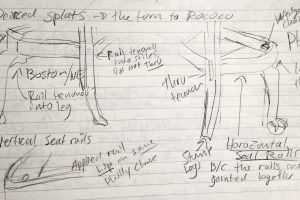 splats → the turn to Rococo
Boston/NE
Rail tenoned
into leg
Rail tenoned
into stiles
but not thru
thru
tenon
Vertical Seat rails
Applied rail
Lip on some
Philly Chairs
Stump
legs
Horizontal
Seat Rails
B/C the rails are
jointed together